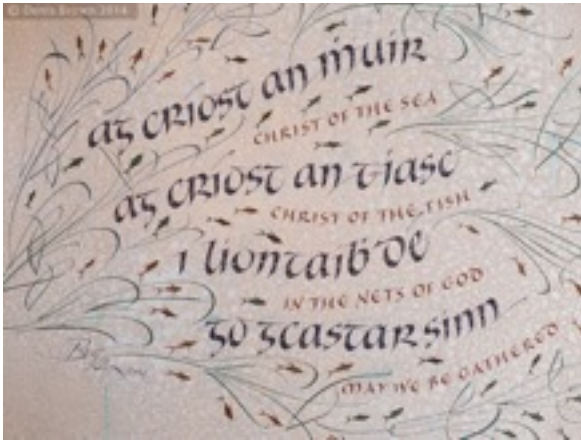 © Denis Brown 2014
ag críost an ṁuir
CHRIST OF THE SEA
ag críost an t-iasc
CHRIST OF THE FISH
i líontaiḃ dé
IN THE NETS OF GOD
go gcastar sinn
MAY WE BE GATHERED